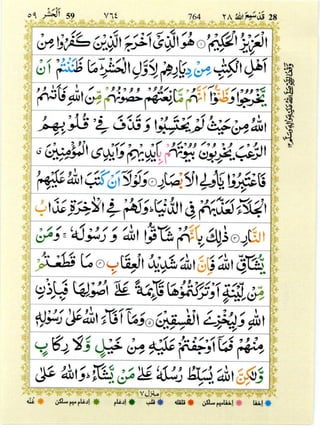 ٥٩ اَلْحَشْر 59 ٧٦٤ 764 قَدْ سَمِعَ اللّٰهُ ٢٨ 28
الْعَزِيْزُ الْحَكِيْمُ ۝ هُوَ الَّذِيْۤ اَخْرَجَ الَّذِيْنَ كَفَرُوْا مِنْ
اَهْلِ الْكِتٰبِ مِنْ دِيَارِهِمْ لِاَوَّلِ الْحَشْرِ ؕ مَا ظَنَنْتُمْ اَنْ
يَّخْرُجُوْا وَظَنُّوْۤا اَنَّهُمْ مَّانِعَتُهُمْ حُصُوْنُهُمْ مِّنَ اللّٰهِ فَاَتٰىهُمُ
اللّٰهُ مِنْ حَيْثُ لَمْ يَحْتَسِبُوْا وَقَذَفَ فِيْ قُلُوْبِهِمُ
الرُّعْبَ يُخْرِبُوْنَ بُيُوْتَهُمْ بِاَيْدِيْهِمْ وَاَيْدِي الْمُؤْمِنِيْنَ ۗ
فَاعْتَبِرُوْا يٰۤاُولِي الْاَبْصَارِ ۝ وَلَوْلَاۤ اَنْ كَتَبَ اللّٰهُ عَلَيْهِمُ
الْجَلَآءَ لَعَذَّبَهُمْ فِي الدُّنْيَا ؕ وَلَهُمْ فِي الْاٰخِرَةِ عَذَابُ
النَّارِ ۝ ذٰلِكَ بِاَنَّهُمْ شَآقُّوا اللّٰهَ وَرَسُوْلَهٗ ۚ وَمَنْ
يُّشَآقِّ اللّٰهَ فَاِنَّ اللّٰهَ شَدِيْدُ الْعِقَابِ ۝ مَا قَطَعْتُمْ
مِّنْ لِّيْنَةٍ اَوْ تَرَكْتُمُوْهَا قَآئِمَةً عَلٰۤى اُصُوْلِهَا فَبِاِذْنِ
اللّٰهِ وَلِيُخْزِيَ الْفٰسِقِيْنَ ۝ وَمَاۤ اَفَآءَ اللّٰهُ عَلٰى رَسُوْلِهٖ
مِنْهُمْ فَمَاۤ اَوْجَفْتُمْ عَلَيْهِ مِنْ خَيْلٍ وَّلَا رِكَابٍ
وَّلٰكِنَّ اللّٰهَ يُسَلِّطُ رُسُلَهٗ عَلٰى مَنْ يَّشَآءُ ؕ وَاللّٰهُ عَلٰى
منزل ٧
اخفا اخفا میم ساکن قلقلہ قلب ادغام ادغام میم ساکن غنّہ